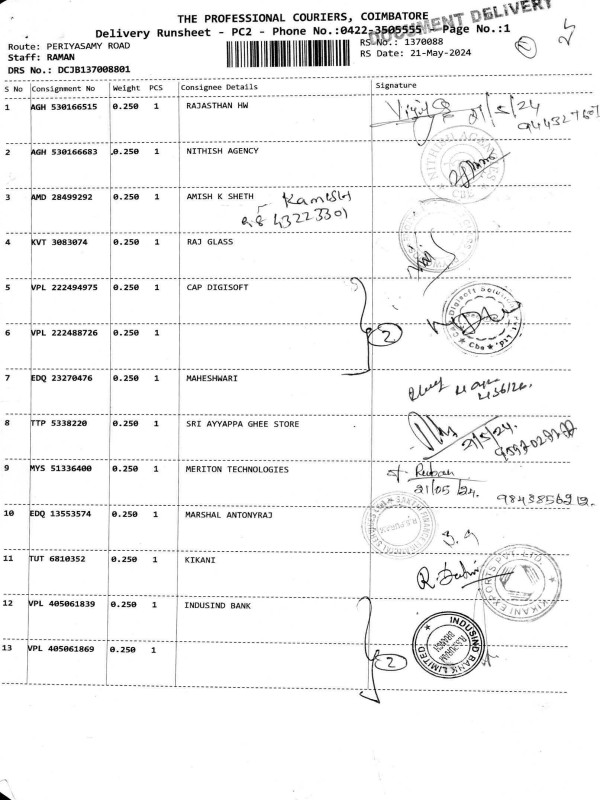 THE PROFESSIONAL COURIERS, COIMBATORE
DOCUMENT DELIVERY
Delivery Runsheet - PC2 - Phone No.:0422-3505555 Page No.:1
Route: PERIYASAMY ROAD
RS No.: 1370088
Staff: RAMAN
RS Date: 21-May-2024
DRS No.: DCJB137008801
S No Consignment No Weight PCS Consignee Details Signature
1 AGH 530166515 0.250 1 RAJASTHAN HW
2 AGH 530166683 0.250 1 NITHISH AGENCY
3 AMD 28499292 0.250 1 AMISH K SHETH Kamesh
98 43223301
4 KVT 3083074 0.250 1 RAJ GLASS
5 VPL 222494975 0.250 1 CAP DIGISOFT
6 VPL 222488726 0.250 1 2
7 EDQ 23270476 0.250 1 MAHESHWARI
8 TTP 5338220 0.250 1 SRI AYYAPPA GHEE STORE
21/5/24.
9 MYS 51336400 0.250 1 MERITON TECHNOLOGIES
21/05/24.
10 EDQ 13553574 0.250 1 MARSHAL ANTONYRAJ
11 TUT 6810352 0.250 1 KIKANI
KIKANI EXPORTS PVT. LTD.
12 VPL 405061839 0.250 1 INDUSIND BANK
INDUSIND BANK LIMITED
13 VPL 405061869 0.250 1 2